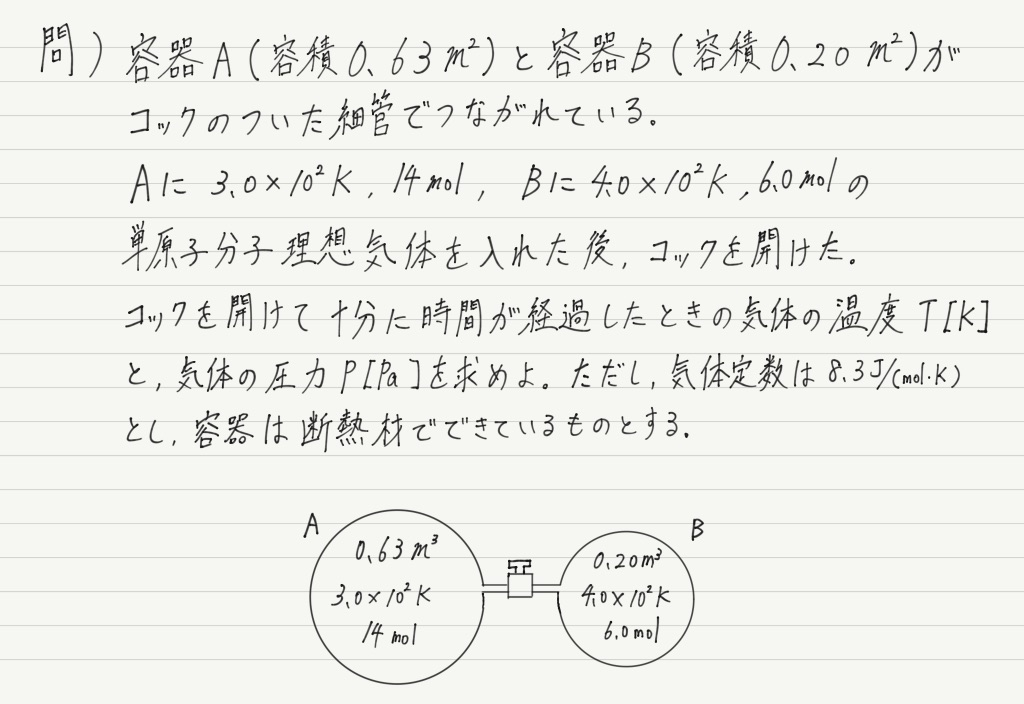 問) 容器A(容積0.63m²)と容器B(容積0.20m²)が
コックのついた細管でつながれている。
Aに 3.0×10²K, 14mol, Bに 4.0×10²K, 6.0molの
単原子分子理想気体を入れた後, コックを開けた。
コックを開けて十分に時間が経過したときの気体の温度T[K]
と, 気体の圧力P[Pa]を求めよ。ただし, 気体定数は8.3J/(mol·K)
とし, 容器は断熱材でできているものとする。
A
0.63m³
3.0×10²K
14mol
B
0.20m³
4.0×10²K
6.0mol